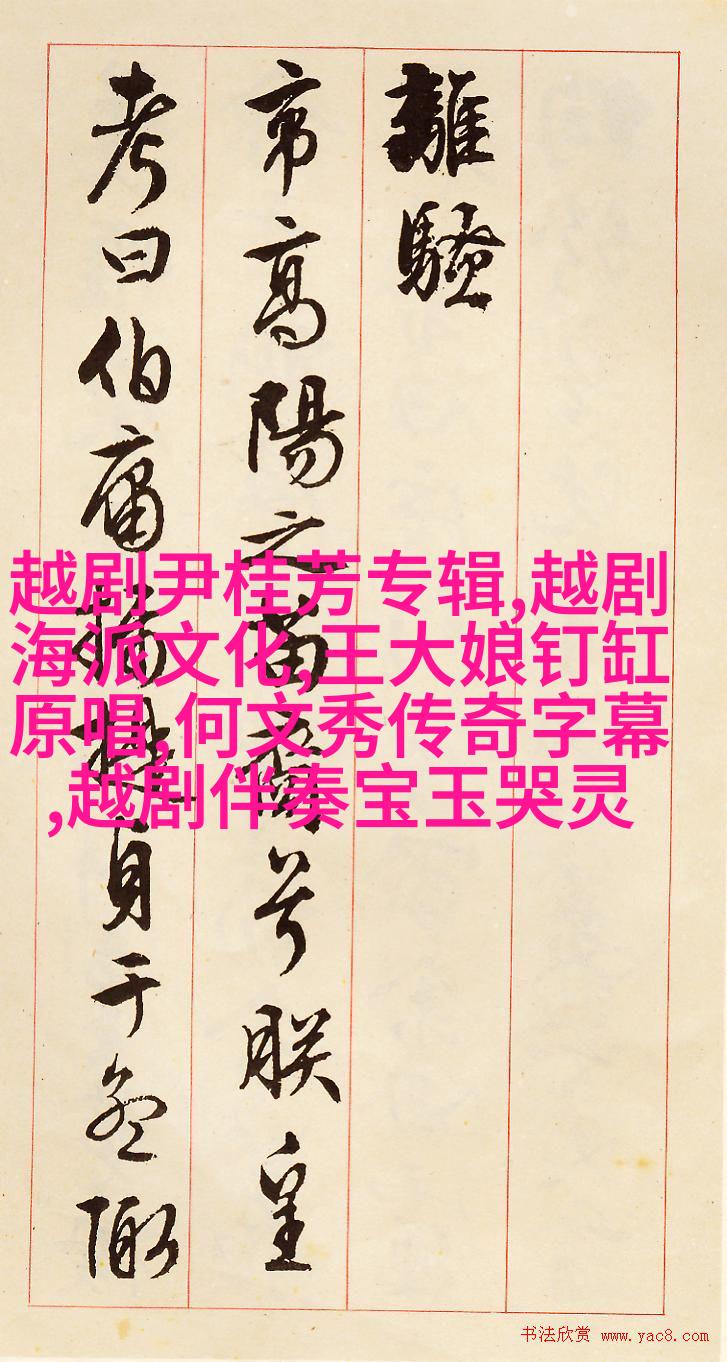 離騷
帝高陽之苗裔兮朕皇
考曰伯庸攝提貞于孟陬
越剧尹桂芳专辑,越剧
海派文化,王大娘钉缸
原唱,何文秀传奇字幕
,越剧伴奏宝玉哭灵
书法欣赏 www.yac8.com